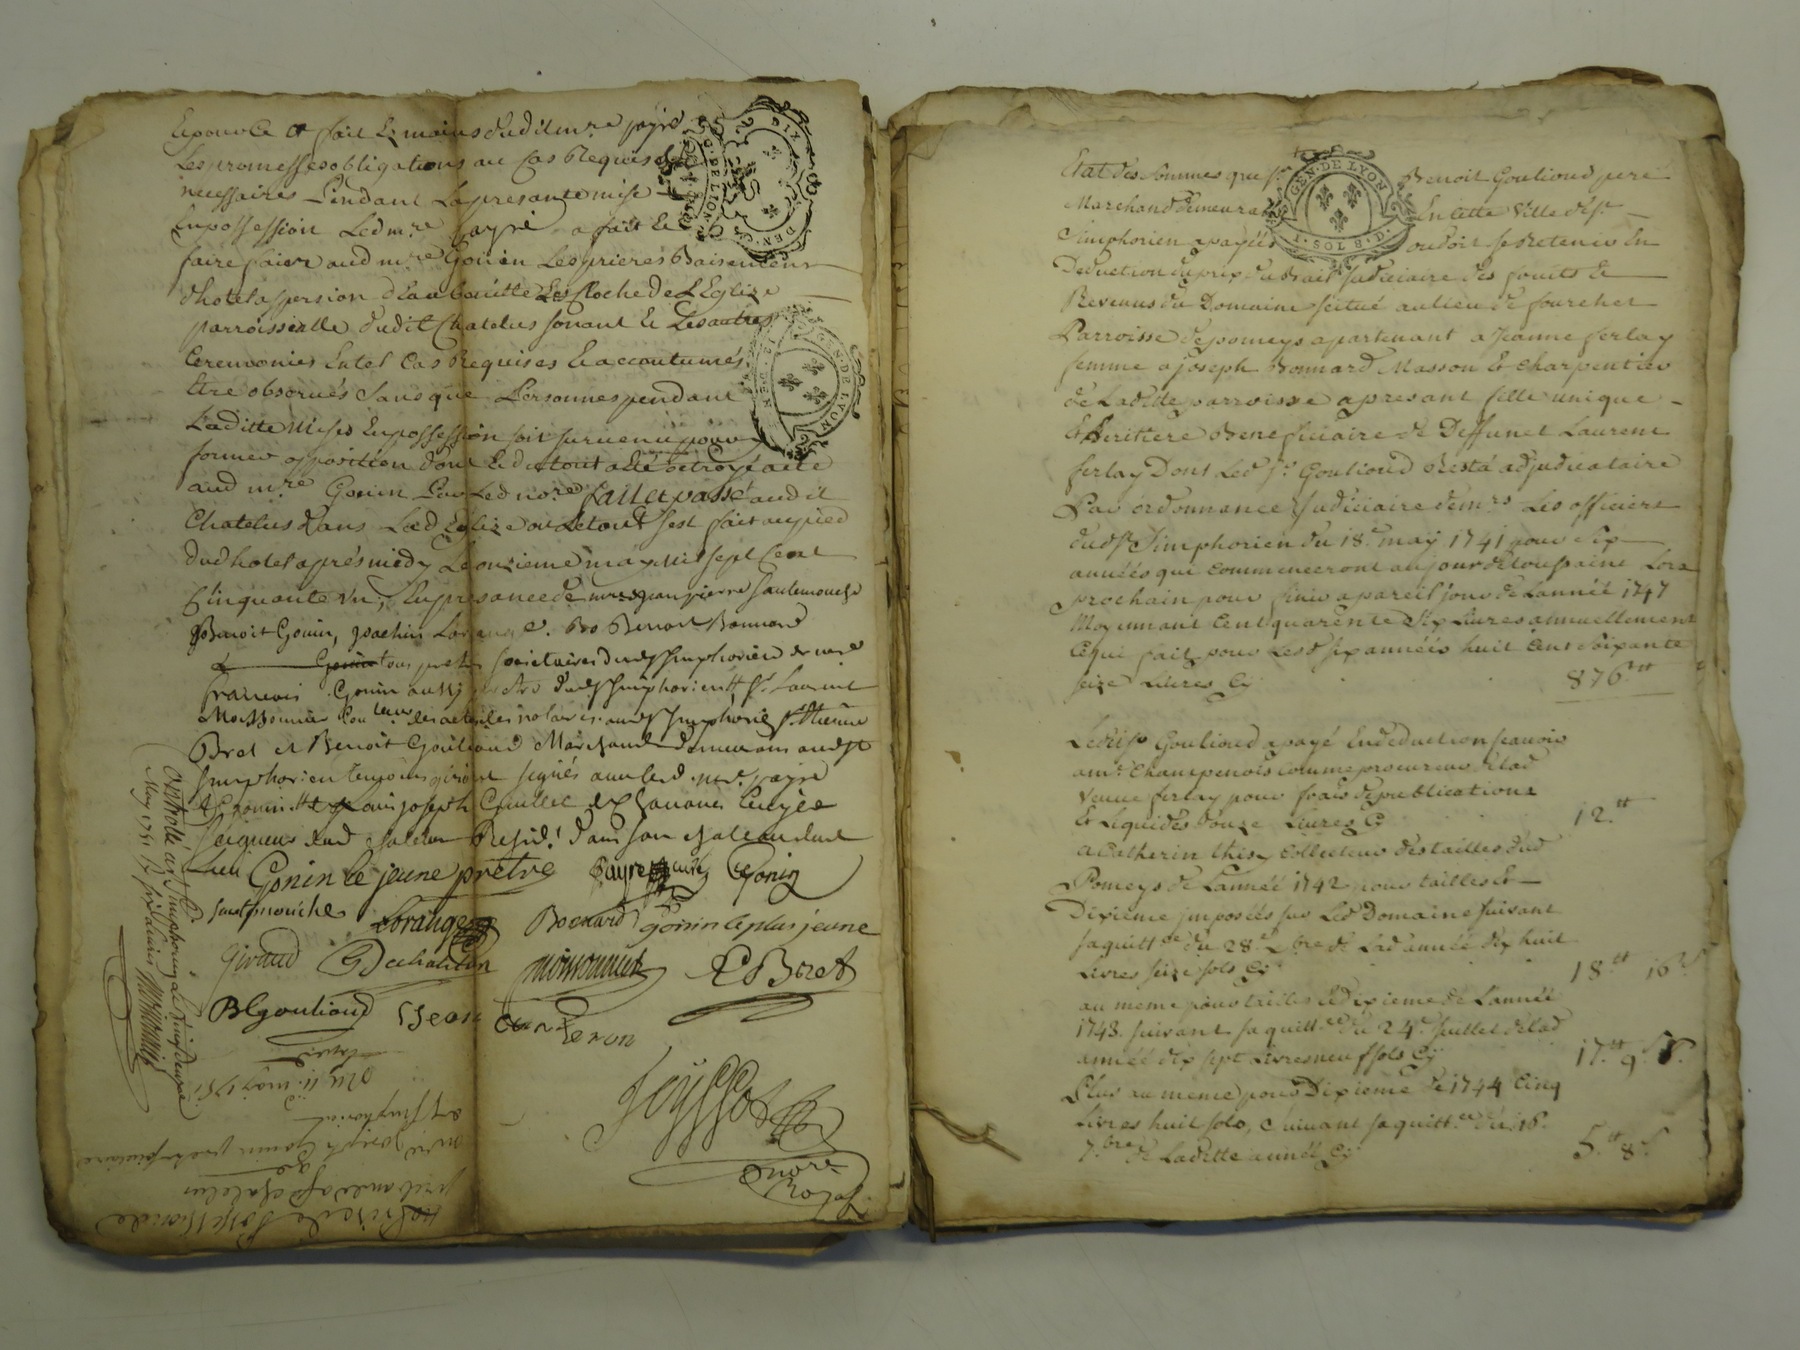 Les promesses obligations au Cas Requis et
necessaires Pendant La presante mise
En possession Led mre payre a fait Et
faire faire aud mre Gonin Les prieres Baisement
dhotel aspersion dEau benitte Les Cloche de LEglize
parroissialle dudit Chatelus sonant Et Les autres
Ceremonies En tel Cas Requises Et accoutumés
Etre observés Sans que Personnes pendant
Laditte Mise En possession soit survenu pour
former opposition dont Et du tout a été octroyé acte
aud mre Gonin Par Led nore fait et passé audit
Chatelus Dans Lad Eglize ou Le tout sest fait au pied
dud hotel aprés midy Le onzieme may mil sept Cent
Cinquante un, En presance de mres jean pierre Sautemouche
Benoit Gonin, joachin Lorange, Benoit Bonnard
Gonin tous pretres societaires dud st Simphorien
francois Gonin aussy pretre dud st Simphorien st Laurent
Moissonnier Con leur des actes des notaires aud st Simphorien st Etienne
Bret et Benoit Goulioud Marchands demeurans aud st
Simphorien temoins signés avec led mre payre
Et Gonin Louis joseph
Seigneur dud Chatelus Resid. dans son chateau dud
Lieu Gonin le jeune prêtre payre curé Gonin
Sautemouche Lorange Bonnard gonin le plus jeune
Giraud Moissonnier E Bret
B Goulioud
nore
Royal
Controllé a st Simphorien Le
May 1751
Du 11 may 1751
GEN. DE LYON
GEN. DE LYON
Etat des Sommes que sr Benoit Goulioud pere
Marchand demeurant En cette Ville de st
Simphorien a payées ou doit se Retenir En
Deduction du prix du Bail judiciaire des fruits Et
Revenus du Domaine scitué au lieu de fourchet
Parroisse de pomeys apartenant a Jeanne ferlay
femme a joseph Bonnard Masson Et Charpentier
de Laditte parroisse a presant fille unique
Et heritiere Beneficiaire de Deffunct Laurent
ferlay Dont Led sr Goulioud Resta adjudicataire
Par ordonnance judiciaire de mrs Les officiers
dud st Simphorien du 18e may 1741 pour six
années qui commenceront au jour de toussaint Lors
prochain pour finir a pareil jour de Lannée 1747
Moyennant Cent quarente six Livres annuellement
Ce qui fait pour Lesd six années huit Cent soixante
seize Livres Cy 876tt
GEN. DE LYON
1. SOL 8. D.
Ledit sr Goulioud a payé En deduction scavoir
a mr Champenois Comme procureur de lad
veuve ferlay pour frais de publications
Et Liquidés douze Livres Cy 12tt
a Catherin thisy Collecteur des tailles dud
Pomeys de Lannée 1742 pour tailles Et
Dixieme imposées sur Led Domaine suivant
sa quittce du 28e xbre de Lad année dix huit
Livres seize sols Cy 18tt 16s
au meme pour tailles Et dixieme de Lannée
1743. suivant sa quittce du 24e juillet de lad
année dix sept Livres neuf sols Cy 17tt 9s
Plus au meme pour Dixieme de 1744 Cinq
Livres huit sols, suivant sa quittce du 16.
7bre de Laditte année Cy 5tt 8s